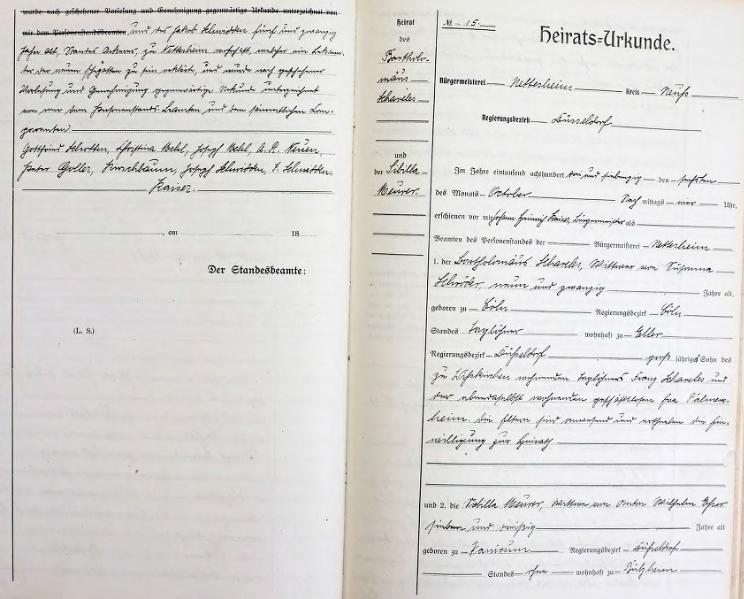 wurde nach geschehener Vorlesung und Genehmigung gegenwärtige Urkunde unterzeichnet von
mir dem Personenstandsbeamten und des Jakob Schmidten fünf und zwanzig
Jahre alt, Standes Ackerer, zu Nettesheim wohnhaft, welcher ein Bekann-
ter der neuen Ehegatten zu sein erklärt, und wurde nach geschehener
Vorlesung und Genehmigung gegenwärtige Urkunde unterzeichnet
von mir dem Personenstands Beamten und den sämmtlichen Com-
parenten.
Joseph
Peter Joseph Schmidten, J. Schmidten,
Kaiser.
, am 18
Der Standesbeamte:
(L. S.)
Heirat
des
Bartholo-
mäus
Schareles
und
der Sibilla
Meurer.
№ 15.
Heirats-Urkunde.
Bürgermeisterei Nettesheim Kreis Neuß
Regierungsbezirk Düsseldorf
Im Jahre eintausend achthundert drei und siebenzig den sechsten
des Monats October Nach mittags vier Uhr,
erschienen vor mir Heinrich Kaiser, Bürgermeister als
Beamten des Personenstandes der Bürgermeisterei Nettesheim
1. der Bartholomäus Schareles, Wittwer von Susanna
Schröder, neun und zwanzig Jahre alt,
geboren zu Cöln Regierungsbezirk Cöln
Standes Taglöhner wohnhaft zu Eller
Regierungsbezirk Düsseldorf groß jähriger Sohn des
zu wohnenden Taglöhners Franz Schareles und
der ebendaselbst wohnenden geschäftslosen Eva Palmers-
heim. Die Eltern sind anwesend und ertheilen die Ein-
willigung zur Heirath
und 2. die Sibilla Meurer, Wittwe von Anton Wilhelm Esser
sieben und dreißig Jahre alt
geboren zu Ramrath Regierungsbezirk Düsseldorf
Standes ohne wohnhaft zu Bützheim